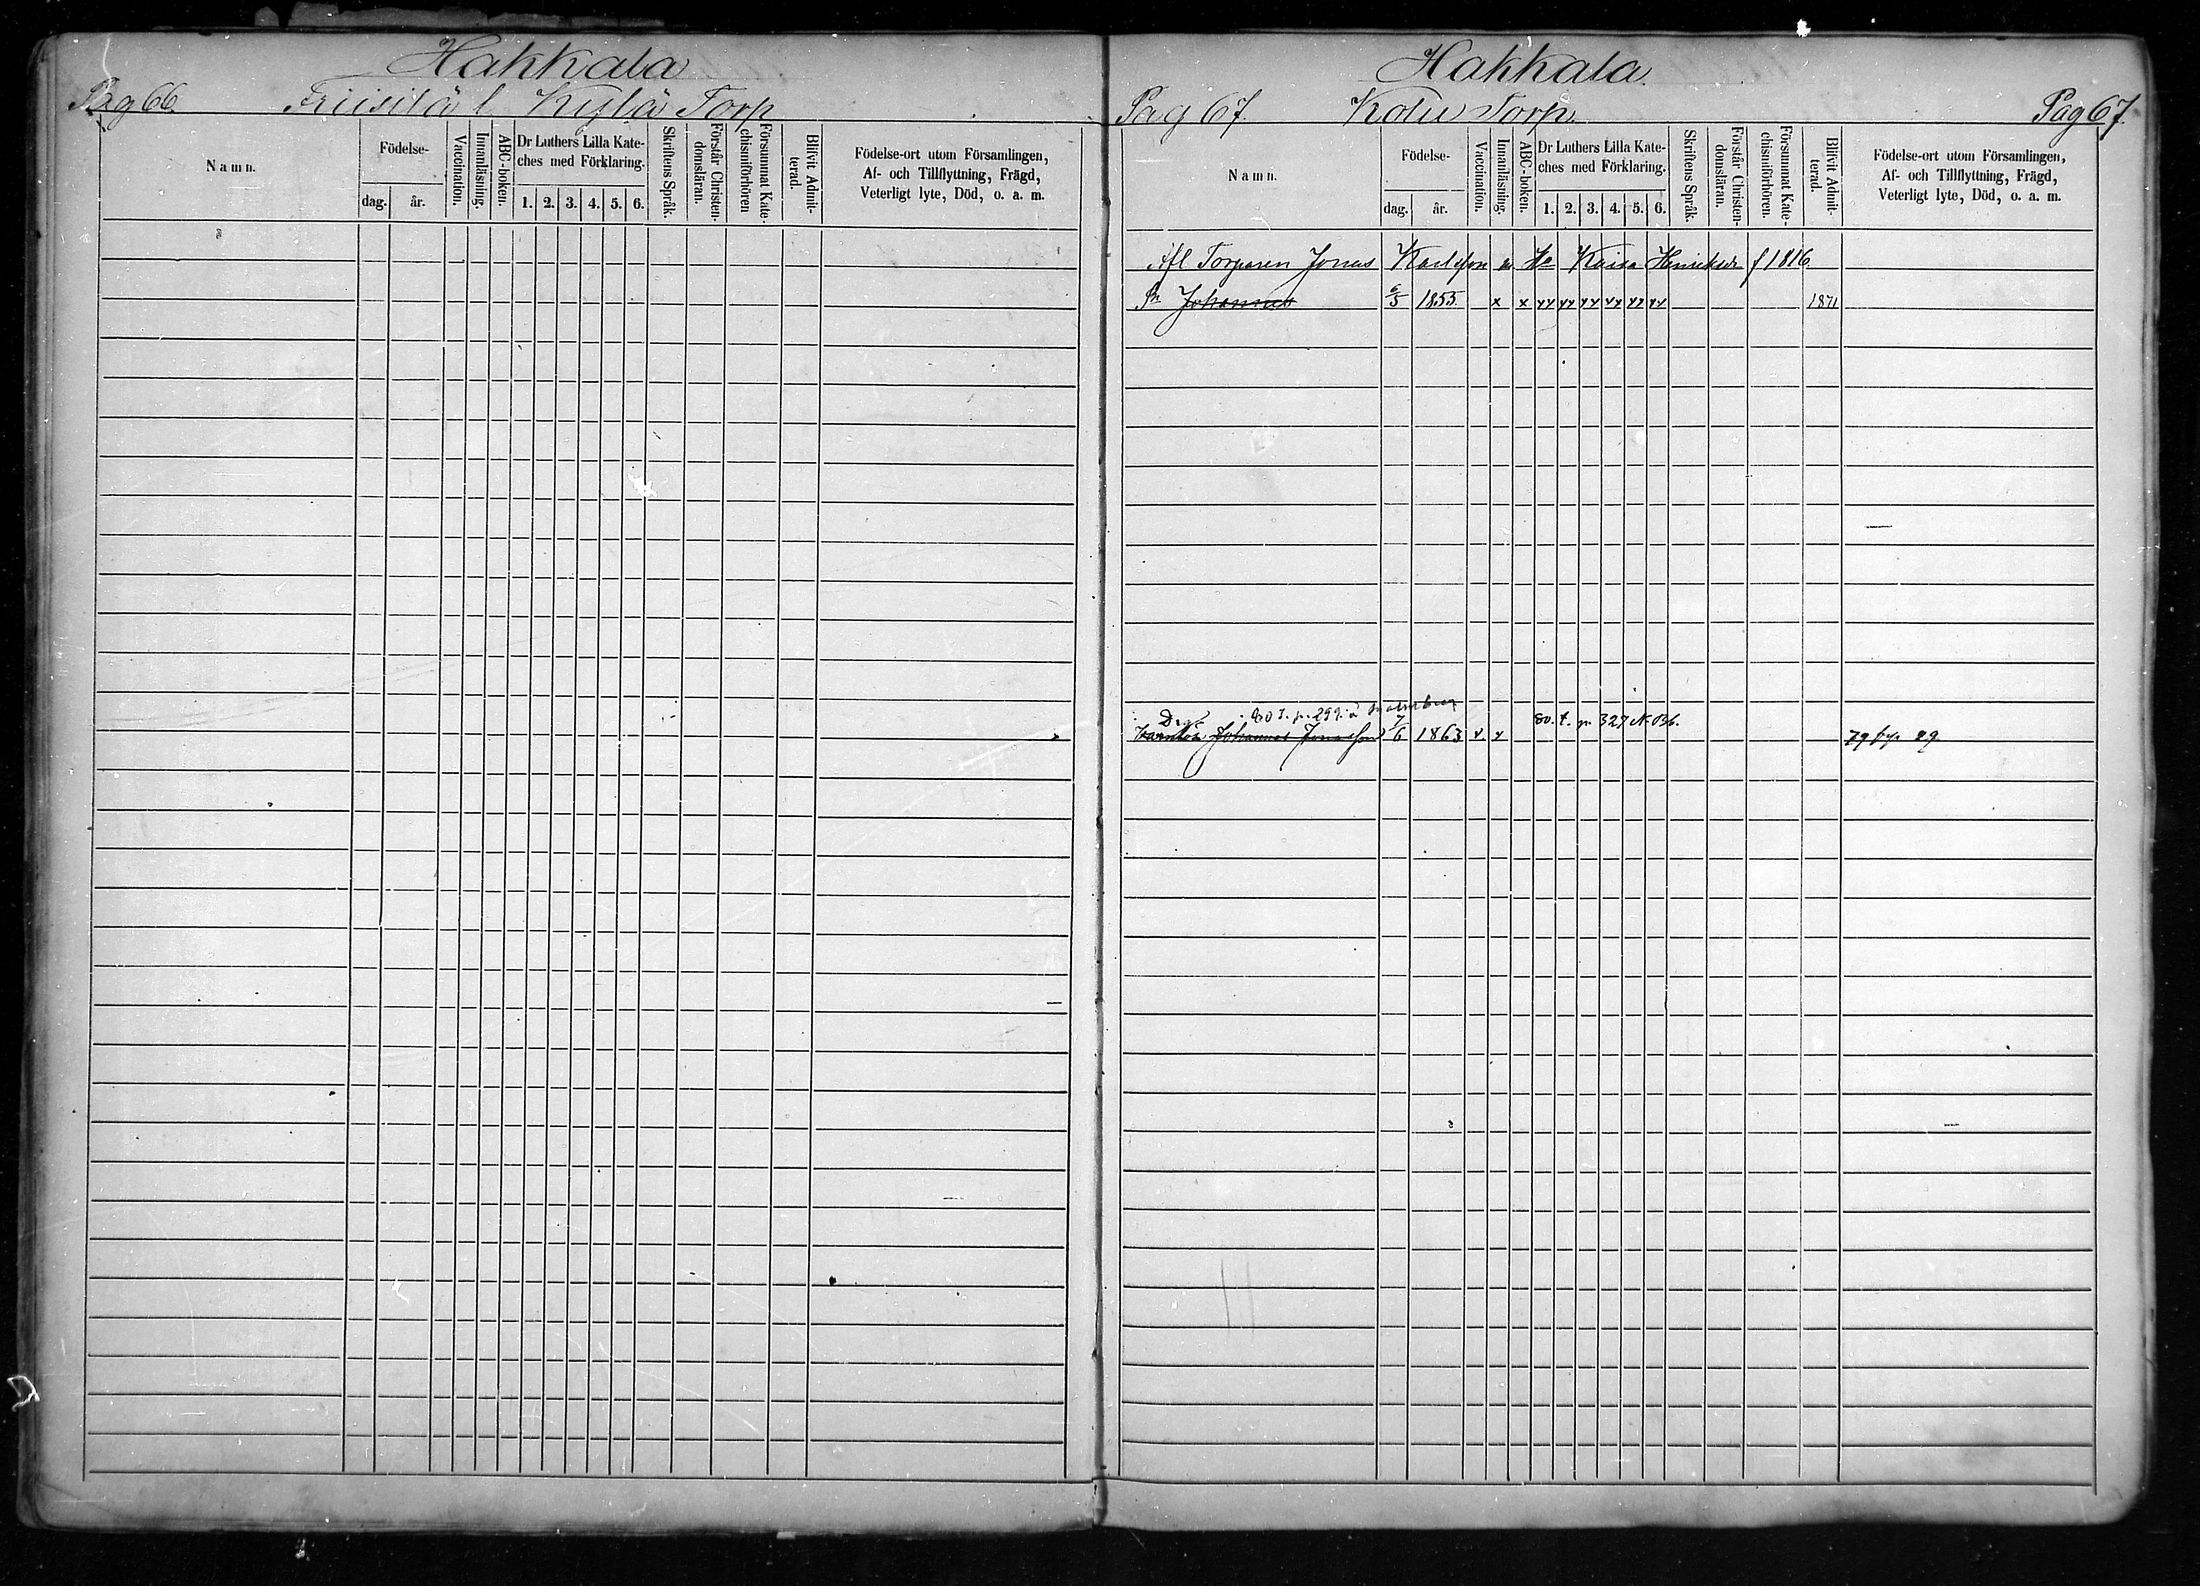 Hakkala
Pag 66. Friisilä l. Kylä Torp
Namn.
Födelse-
dag. år.
Vaccination.
Innanläsning.
ABC-boken.
Dr Luthers Lilla Kate-
ches med Förklaring.
1. 2. 3. 4. 5. 6.
Skriftens Språk.
Förstår Christen-
domsläran.
Försummat Kate-
chismiförhören
Blifvit Admit-
terad.
Födelse-ort utom Församlingen,
Af- och Tillflyttning, Frägd,
Veterligt lyte, Död, o. a. m.
Hakkala
Pag 67. Kolu Torp. Pag 67.
Namn.
Födelse-
dag. år.
Vaccination.
Innanläsning.
ABC-boken.
Dr Luthers Lilla Kate-
ches med Förklaring.
1. 2. 3. 4. 5. 6.
Skriftens Språk.
Förstår Christen-
domsläran.
Försummat Kate-
chismiförhören.
Blifvit Admit-
terad.
Födelse-ort utom Församlingen,
Af- och Tillflyttning, Frägd,
Veterligt lyte, Död, o. a. m.
Afl Torparen Jonas Karlsson Kaisa Henriksdr f 1816
Johannes 6/5 1855 x x 1871
80 t. p. 299 80. t. p. 327 N. 136.
Johannes Jonasson 7/6 1863 79 29